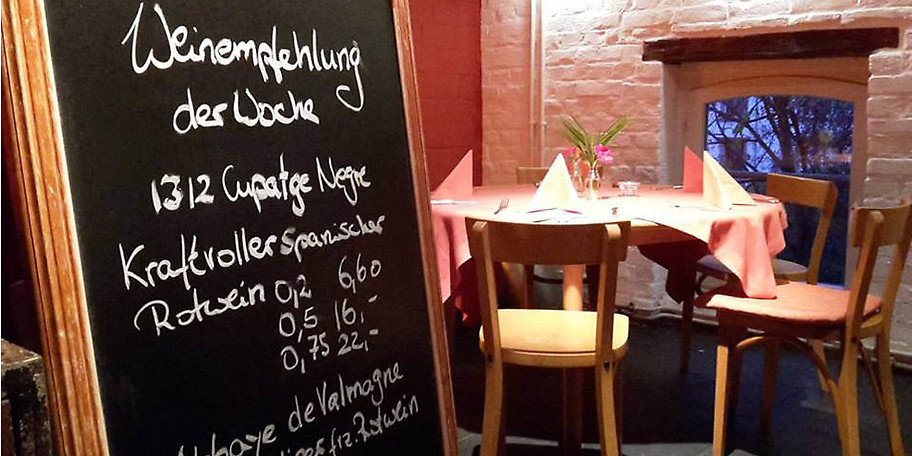 Weinempfehlung
der Woche
1312 Cupatge Negre
Kraftvoller Spanischer
Rotwein 0,2 6,60
0,5 16,-
0,75 22,-
Abbaye de Valmagne
frz. Rotwein